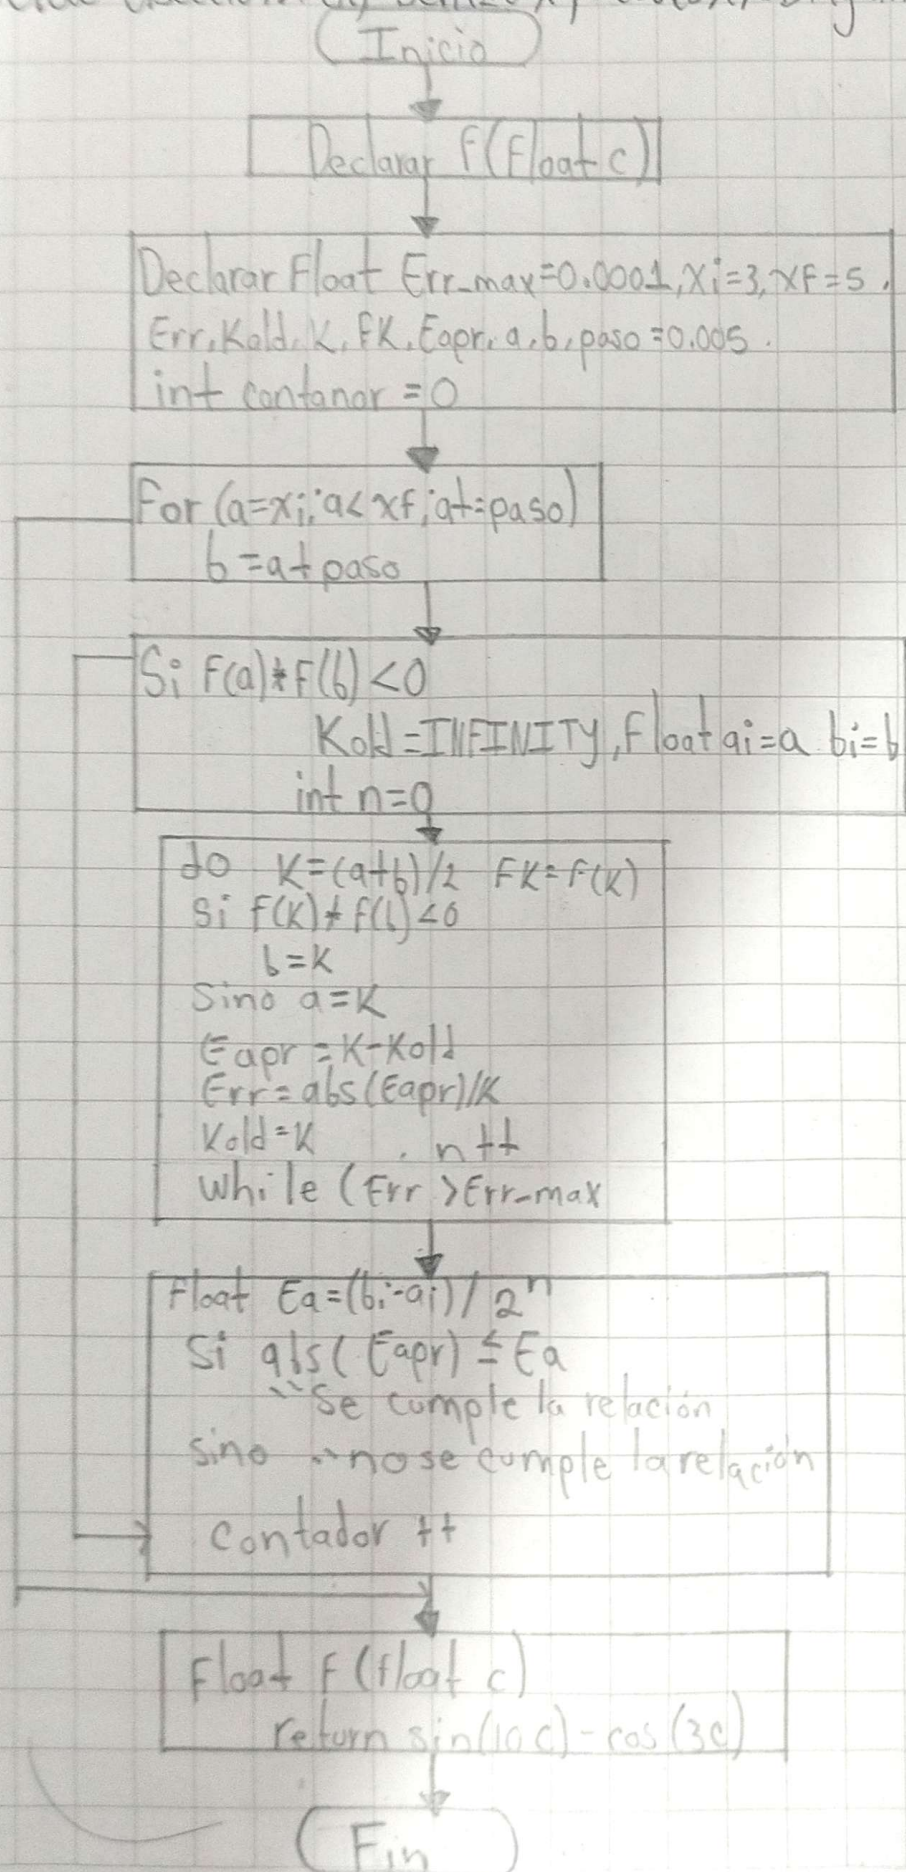 Inicio
Declarar f(float c)
Declarar Float Err_max=0.0001, xi=3, xF=5,
Err, Kold, K, FK, Eapr, a, b, paso=0.005.
int contanor =0
For (a=xi; a<xf; a+=paso)
b=a+paso
Si F(a)*F(b)<0
Kold=INFINITY, Float ai=a bi=b
int n=0
do K=(a+b)/2 FK=F(K)
Si f(K)*f(b)<0
b=K
Sino a=K
Eapr=K-Kold
Err=abs(Eapr)/K
Kold=K . n++
while (Err >Err-max
Float Ea=(bi-ai)/2ⁿ
Si abs(Eapr) ≤ Ea
"Se cumple la relación
sino "no se cumple la relación
Contador ++
Float F(float c)
return sin(10c)-cos(3c)
Fin